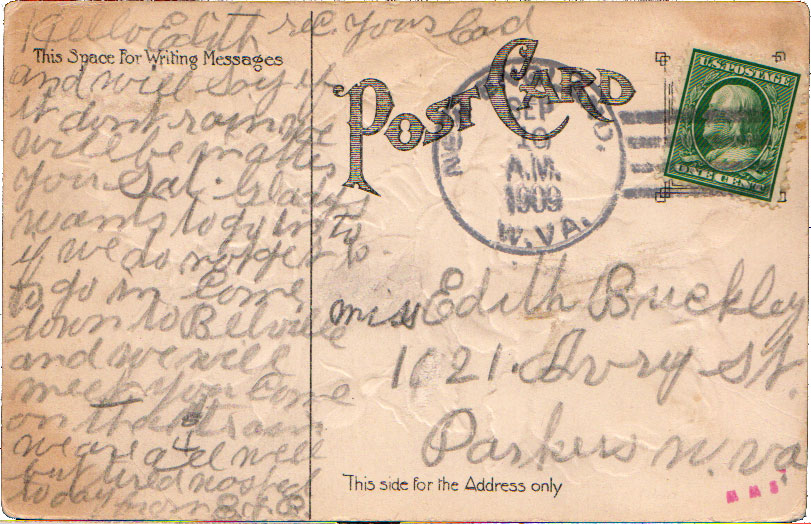 Hello Edith rec. Yours Cad
This Space For Writing Messages
and will say if
it dont rain we
will be in after
you Sat. Gladys
wants to go in to
if we do not get to
to go in Come
down to Belville
and we will
meet you Come
on that train
we are all well
but tired
today from
POST CARD
SEP
10
A.M.
1909
W.VA.
U.S. POSTAGE
ONE CENT
Miss Edith Buckley
1021. Avry St.
Parkers W. va
This side for the Address only